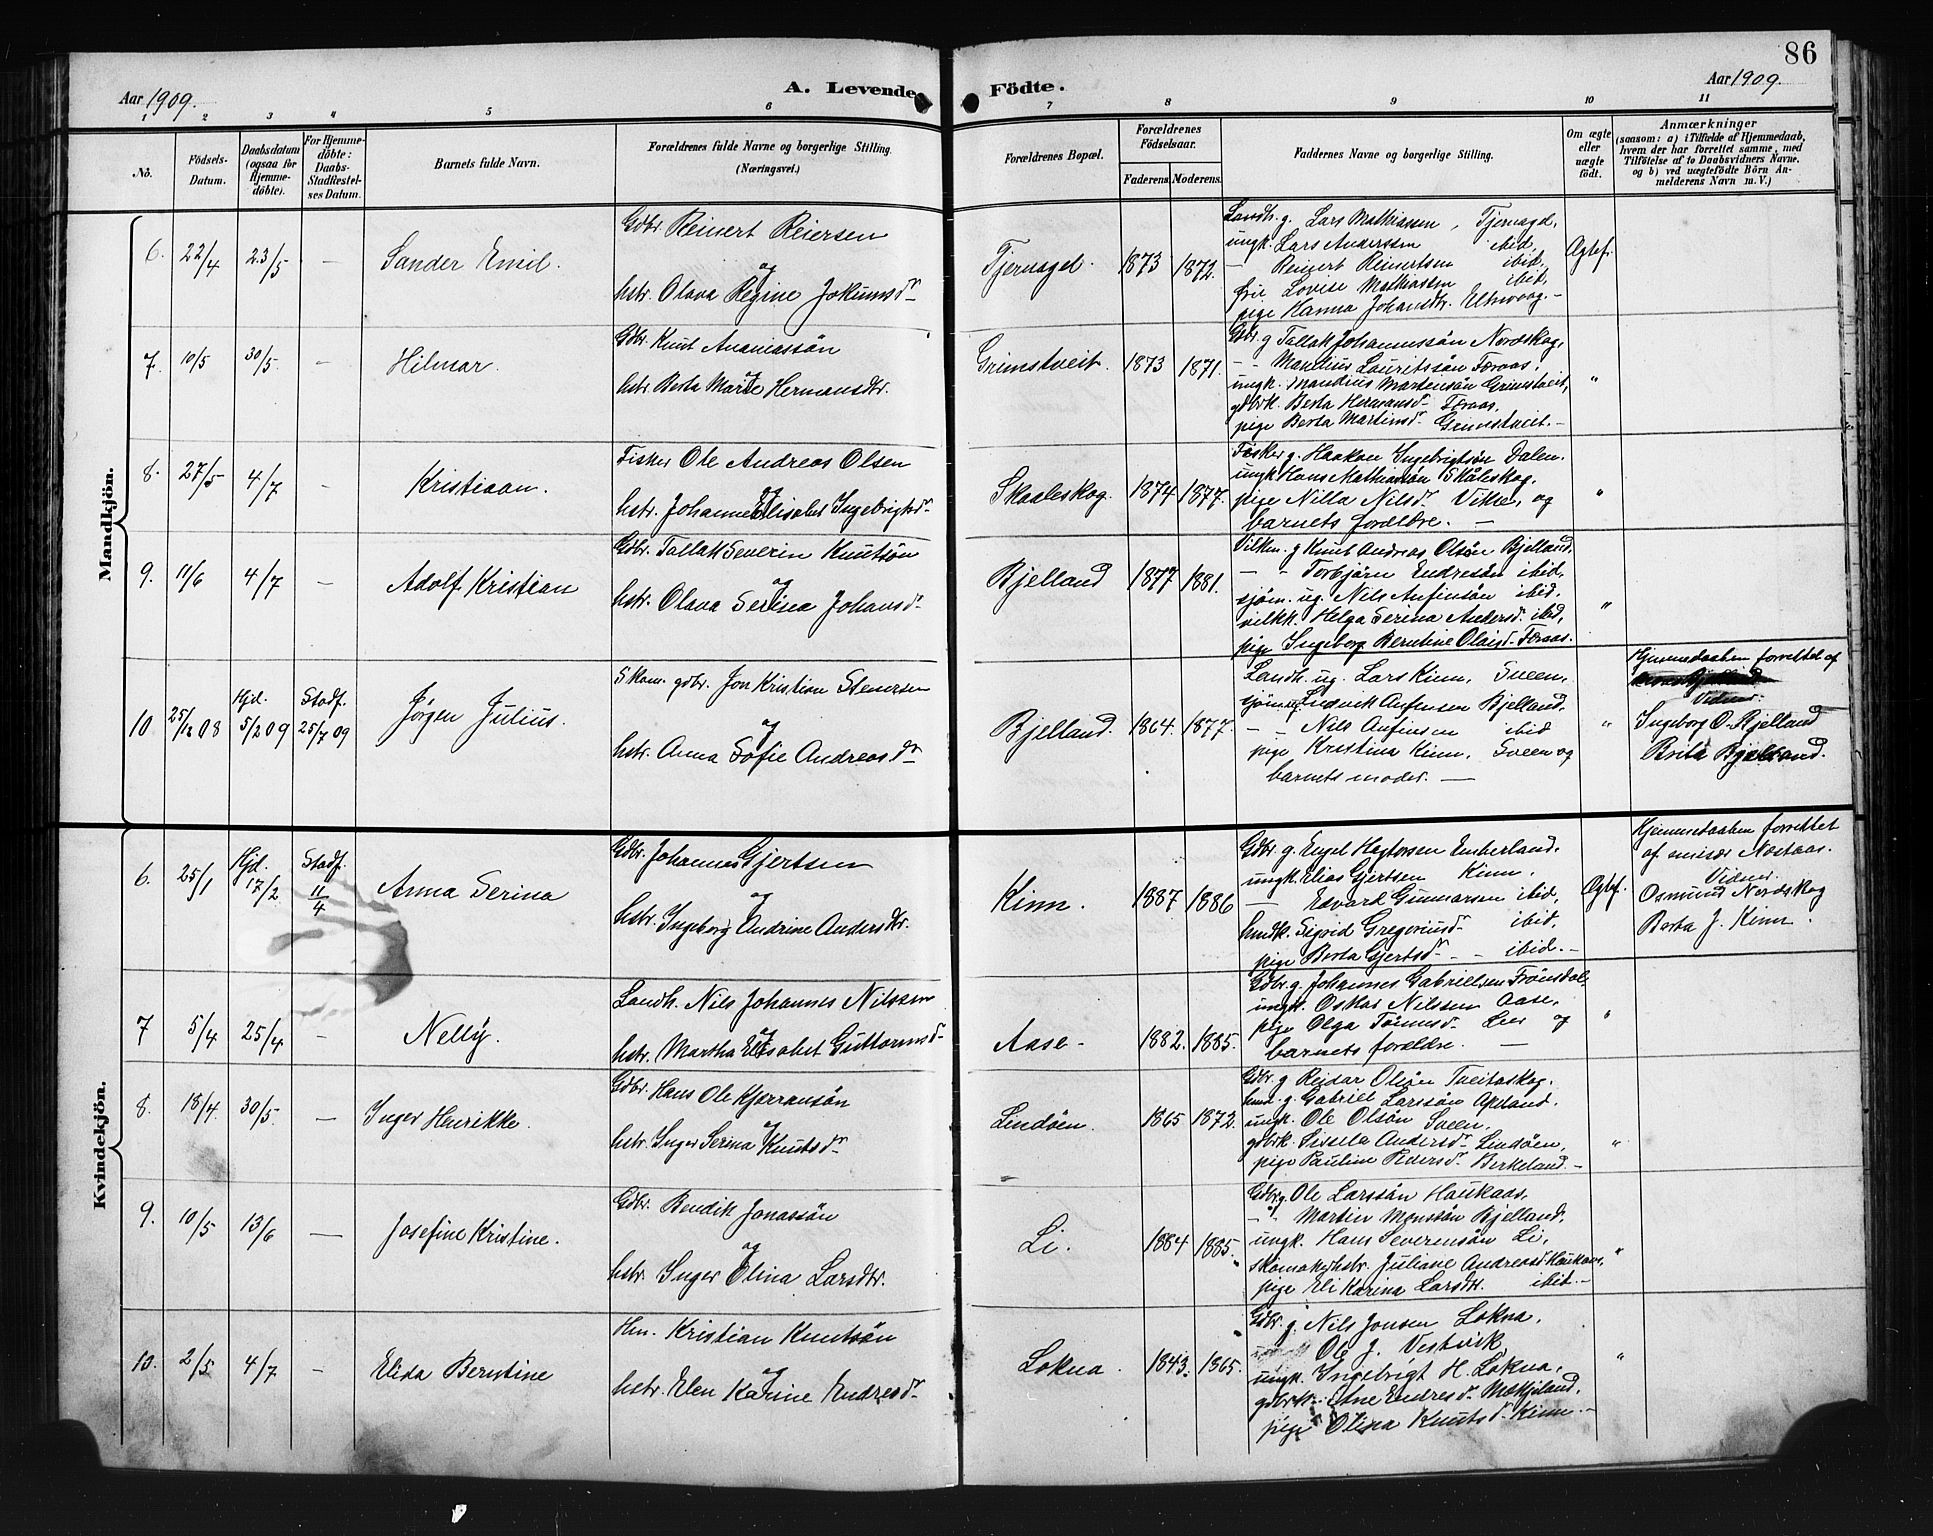 86
Aar 1909.
A. Levende Födte.
Aar 1909.
1 2 3 4 5 6 7 8 9 10 11
No.
Födsels-Datum.
Daabsdatum (ogsaa för Hjemmedöbte).
For Hjemmedöbte: Daabs-Stadfestelses Datum.
Barnets fulde Navn.
Forældrenes fulde Navne og borgerlige Stilling.
(Næringsvei.)
Forældrenes Bopæl.
Forældrenes Födselsaar.
Faderens Moderens.
Faddernes Navne og borgerlige Stilling.
Om ægte eller uægte födt.
Anmærkninger
(saasom: a) i Tilfælde af Hjemmedaab, hvem der har forrettet samme, med Tilföielse af to Daabsvidners Navne. og b) ved uægtefödte Börn Anmelderens Navn m. V.)
Mandkjön.
6. 22/4 23/5 — Sander Emil.
Gdbr. Reinert Reiersen
og
hstr. Olava Regine Jokumsdr
Tjernagel. 1873 1872.
Landh. g. Lars Mathiassen, Tjernagel,
ungk. Lars Anderssen ibid,
— Reinert Reinertsen ibid,
frk Lovise Mathiassen ibid,
pige Hanna Johansdtr. Eltravaag. —
Ægtef.
7. 10/5 30/5 — Hilmar.
Gdbr. Knut Ananiassön
og
hstr. Berta Marie Hermansdtr.
Grimstveit. 1873 1871.
Gdbr. g Tallak Johannessön Nordskog,
— Manlius Lauritssön Færaas,
ungk. Mandius Martensön Grimstveit,
gdbrk. Berta Hermansdr Færaas,
pige Berta Martinsdr Grimstveit. —
"
8. 27/5 4/7 — Kristiaan.
Fisker Ole Andreas Olsen
og
hstr. Johanne Elisabet Ingebrigtsdr
Skaaleskog. 1874 1877.
Fisker g. Haakon Ingebrigtsön Dalen,
ungk Hans Mathiasön Skåleskog,
pige Nilla Nilsdr Vikse, og
barnets forældre. —
"
9. 11/6 4/7 — Adolf Kristian
Gdbr. Tallak Severin Knutsön
og
hstr. Olava Serina Johansdr
Bjelland 1877 1881.
Vilkm. g Knut Andreas Olsön Bjelland,
— - Torbjörn Endresön ibid,
sjöm. ug. Nils Anfinsön ibid,
vilkk. Helga Serina Andersd. ibid,
pige Ingeborg Berntine Olaisd. Færaas.
"
10 25/12 08 Hjd. 5/2 09 Stadf. 25/7 09 Jørgen Julius.
Skom. gdbr. Jon Kristian Stenersen
og
hstr. Anna Sofie Andreasdr
Bjelland. 1864. 1877.
Landh. ug. Lars Kinn, Sveen,
sjöm. Ludvik Anfinsen Bjelland,
— Nils Anfinsen ibid
pige Kristina Kinn, Sveen og
barnets moder. —
"
Hjemmedaaben forrettet af
Vidner
Ingeborg O. Bjelland
Brita Bjelland.
Kvindekjön.
6. 25/1 Hjd. 17/2 Stadf. 11/4 Anna Serina
Gdbr. Johannes Gjertsen
og
hstr. Ingeborg Andrine Andersdtr.
Kinn. 1887 1886
Gdbr. g. Engel Hagtorsen Emberland,
ungk. Elias Gjertsen Kinn,
— Edvard Gunnarsen ibid,
hmdk. Sigrid Gregoriusdr ibid,
pige Berta Gjertsdr - ibid. —
Ægtef.
Hjemmedaaben forrettet
af emisær Nostaas.
Vidner
Osmund Nordskog
Berta J. Kinn.
7 5/4 25/4 — Nelly.
Landh. Nils Johannes Nilssen
og
hstr. Martha Elisabet Guttormsdr
Aase - 1882. 1885.
Gdbr. g. Johannes Gabrielsen Frönsdal,
ungk. Oskar Nilssen Aase,
pige Olga Tönnesdr Lier og
barnets forældre. —
"
8. 18/4. 30/5. — Inger Henrikke.
Gdbr. Hans Ole Kjerransön
og
hstr. Inger Serina Knutsdr
Lindöen. 1865 1872.
Gdbr. g Reidar Olsön Tveitaskog,
hmd. g. Gabriel Larssön Apeland,
ungk. Ole Olsön Sveen,
gdbrk. Sissela Andersdr Lindöen,
pige Pauline Pedersdr Berkeland —
"
9. 10/5 13/6 — Josefine Kristine.
Gdbr. Bendik Jonassön
og
hstr. Inger Elina Larsdtr.
Li. 1884 1885.
Gdbr g. Ole Larssön Haukaas,
— " Martin Monssön Bjelland,
ungk. Hans Severensön Li,
skomakerhstr. Juliane Andreasd Haukaas,
pige Eli Karina Larsdtr. ibid. —
"
10. 2/5 4/7 — Elida Berntine
Hm. Kristian Knutsön
og
hstr. Elen Karine Endresdr
Lokna. 1843. 1865.
Gdbr. g. Nils Jonsen Lokna,
Ole J. Vestvik,
ungk. Ingebrigt H. Lokna,
gdbrk. Ane Endresdr Mækjeland,
pige Olina Knutsdr Kinn. —
"